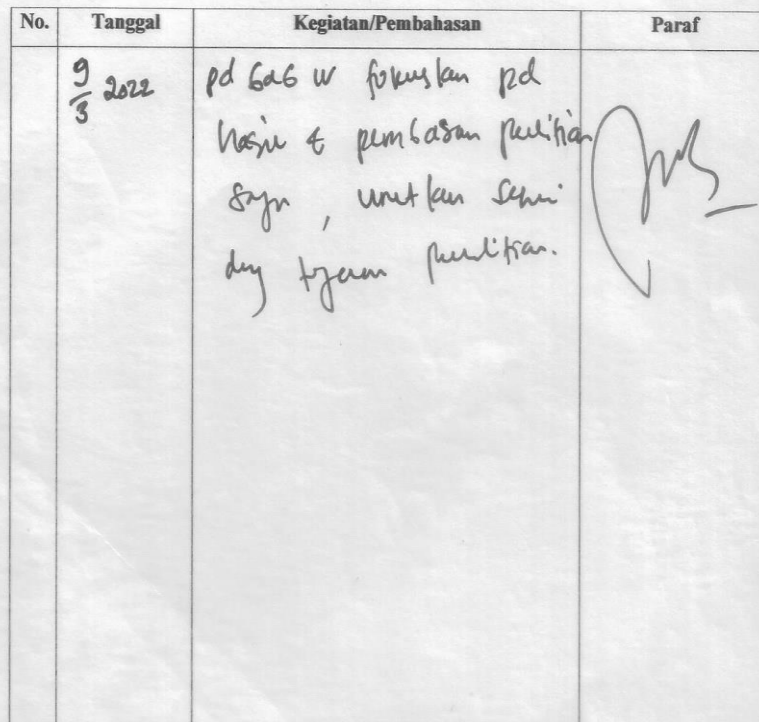 No. Tanggal Kegiatan/Pembahasan Paraf
9/3 2022 pd bab IV fokuskan pd
hasil & pembahasan penelitian
saja, urutkan sesuai
dng tujuan penelitian.